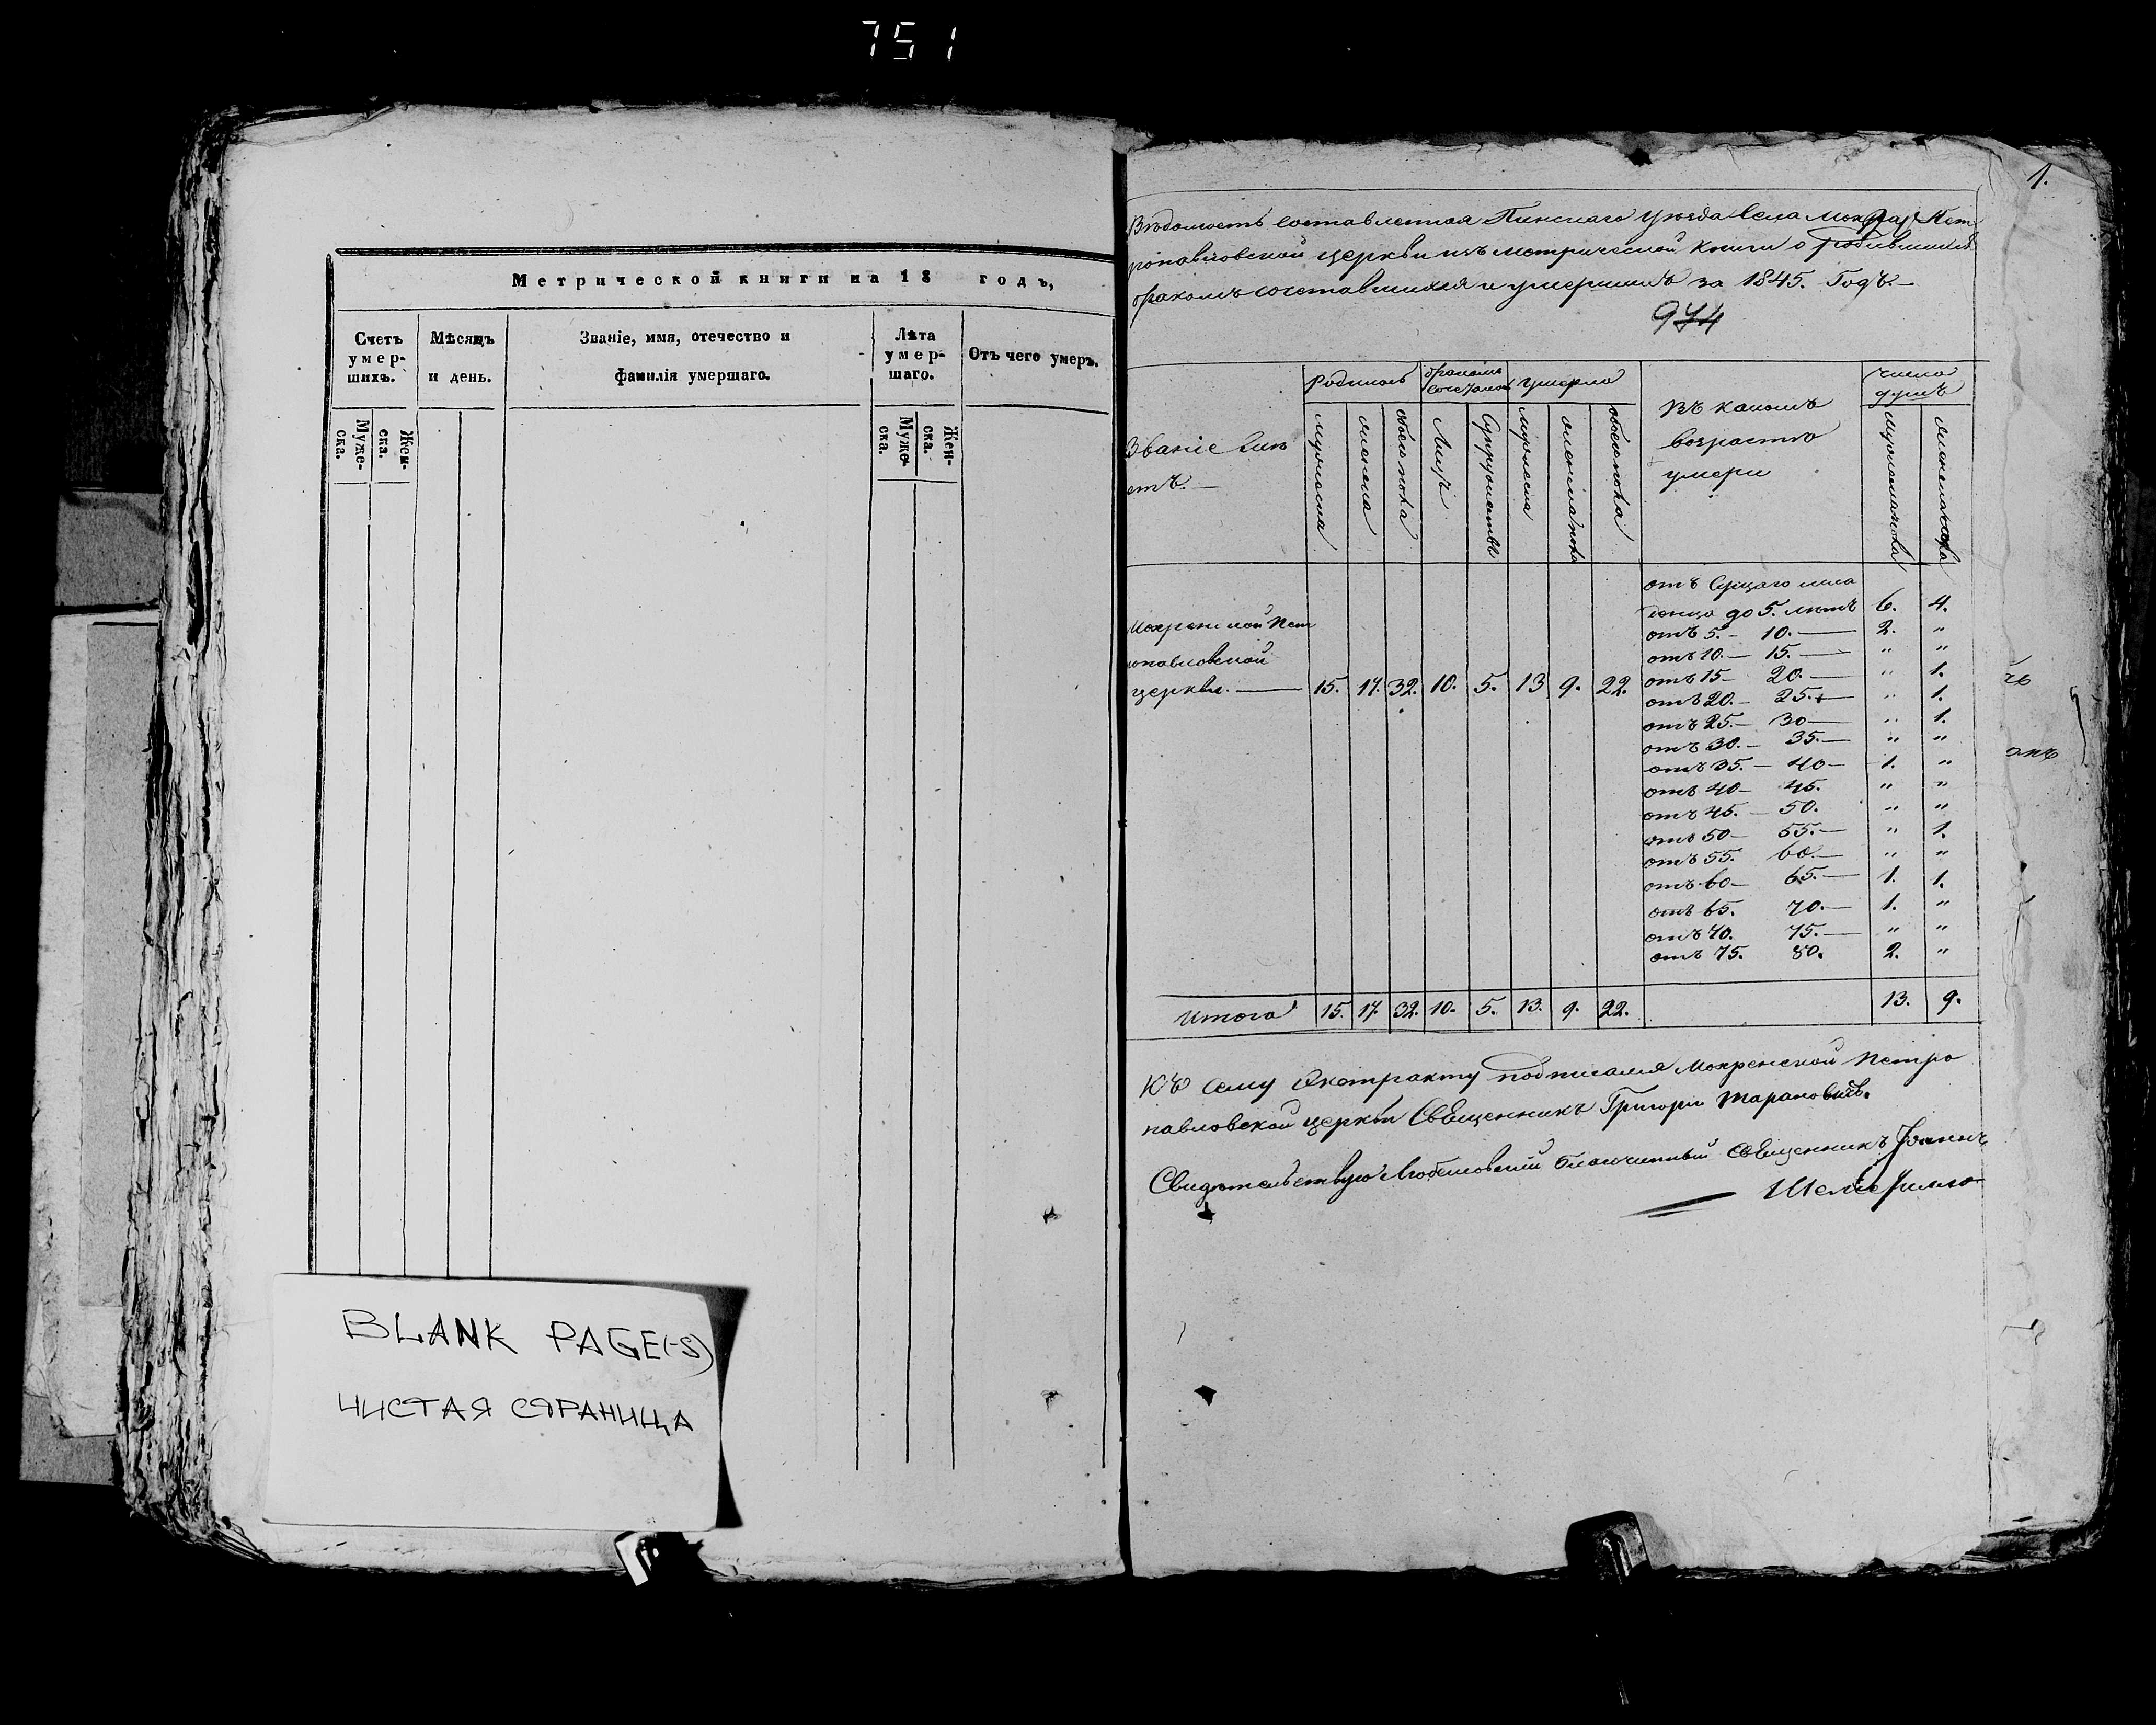 751
Метрической книги на 18 годъ,
Счетъ умер-шихъ.
Мѣсяцъ и день.
Званіе, имя, отечество и фамилія умершаго.
Лѣта умер-шаго.
Отъ чего умеръ.
Муже-ска.
Жен-ска.
Муже-ска.
Жен-ска.
BLANK PAGE(-S)
ЧИСТАЯ СТРАНИЦА
1.
Вѣдомость составленная Пинскаго уѣзда села Пет
ропавловской церкви изъ метрической книги о родившихся
бракомъ сочетавшихся и умершихъ за 1845. Годъ.—
974
Родилось
бракомъ
умерло
Въ какомъ возрастѣ умерли
число душъ
мужеска
женска
обоего пола
Лицъ
Супружествъ
мужеска
женска пола
обоего пола
мужеска пола
женска пола
Мокренской Пет
ропавловской
церкви.— 15. 17. 32. 10. 5. 13 9. 22.
отъ Сущаго мла
денца до 5. лѣтъ 6. 4.
отъ 5.— 10.— 2. "
отъ 10.— 15.— " "
отъ 15— 20.— " 1.
отъ 20.— 25.— " 1.
отъ 25.— 30— " 1.
отъ 30.— 35.— " "
отъ 35.— 40— 1. "
отъ 40— 45. " "
отъ 45.— 50. " "
отъ 50— 55.— " 1.
отъ 55. 60.— " "
отъ 60— 65.— 1. 1.
отъ 65. 70.— 1. "
отъ 70. 75.— " "
отъ 75. 80. 2. "
Итого 15. 17. 32. 10. 5. 13. 9. 22. 13. 9.
Къ сему Екстракту подписался Мокренской Петро
павловской церкви Священникъ Григорій Тарановичъ.
Свидѣтельствую Любешовскій благочинный Священникъ Іоаннъ